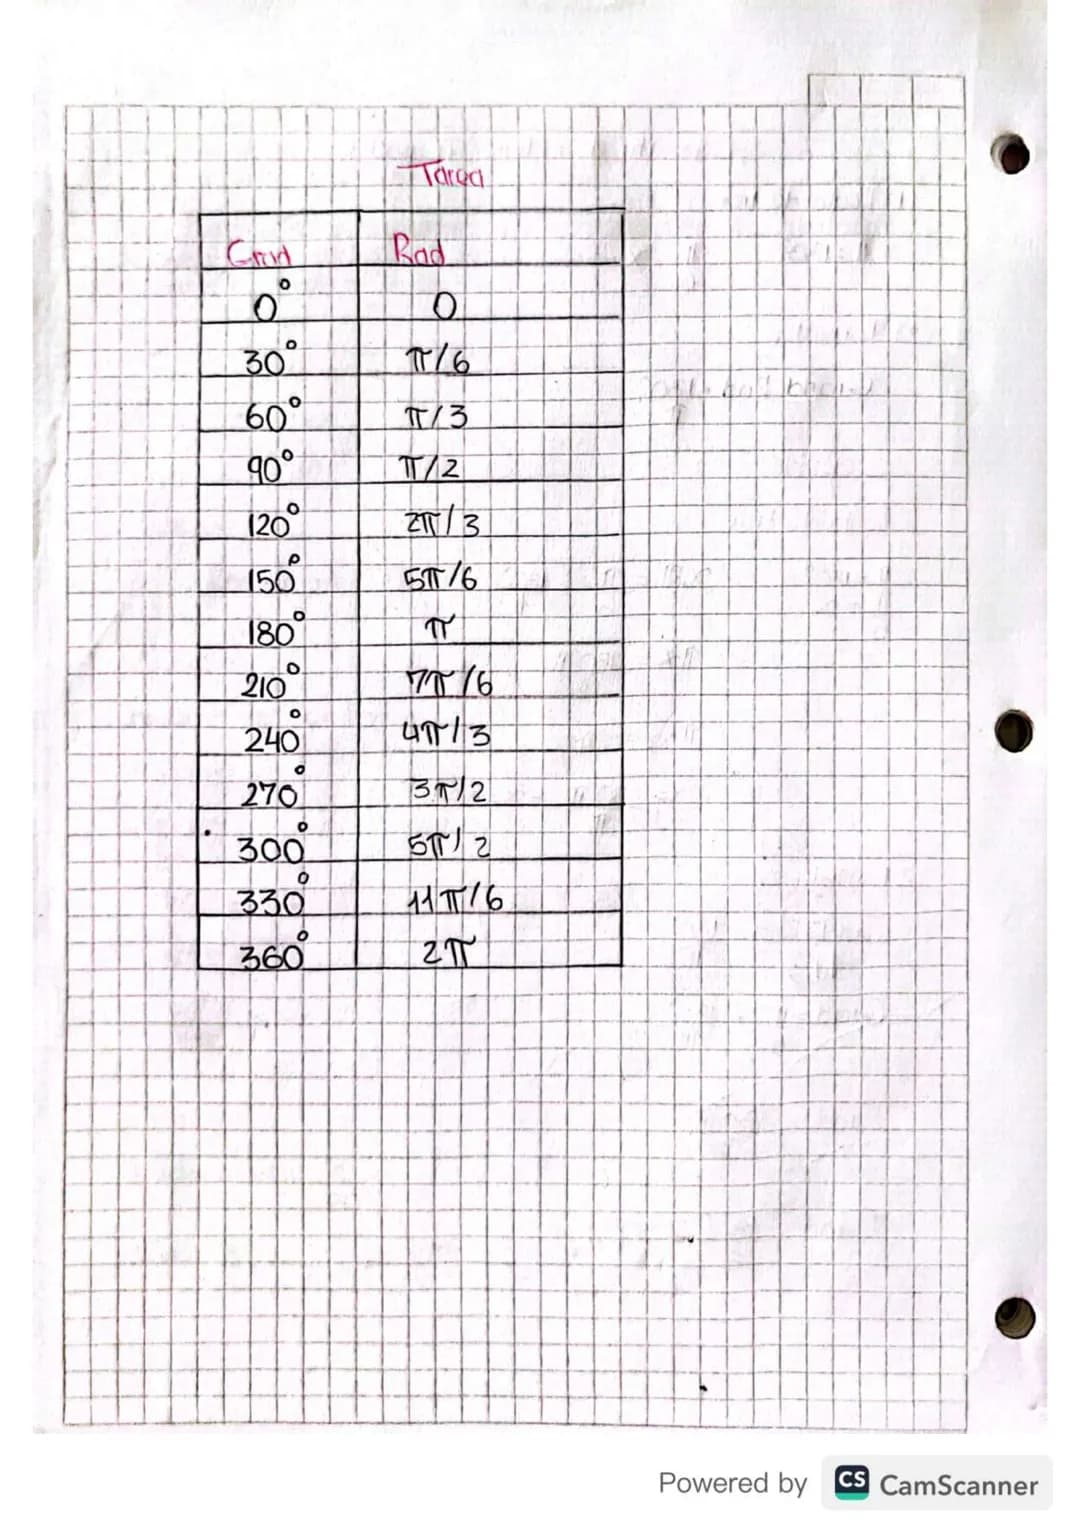 Tarea
Grad Rad
0° 0
30° π/6
60° π/3
90° π/2
120° 2π/3
150° 5π/6
180° π
210° 7π/6
240° 4π/3
270° 3π/2
300° 5π/2
330° 11π/6
360° 2π
Powered by CS CamScanner